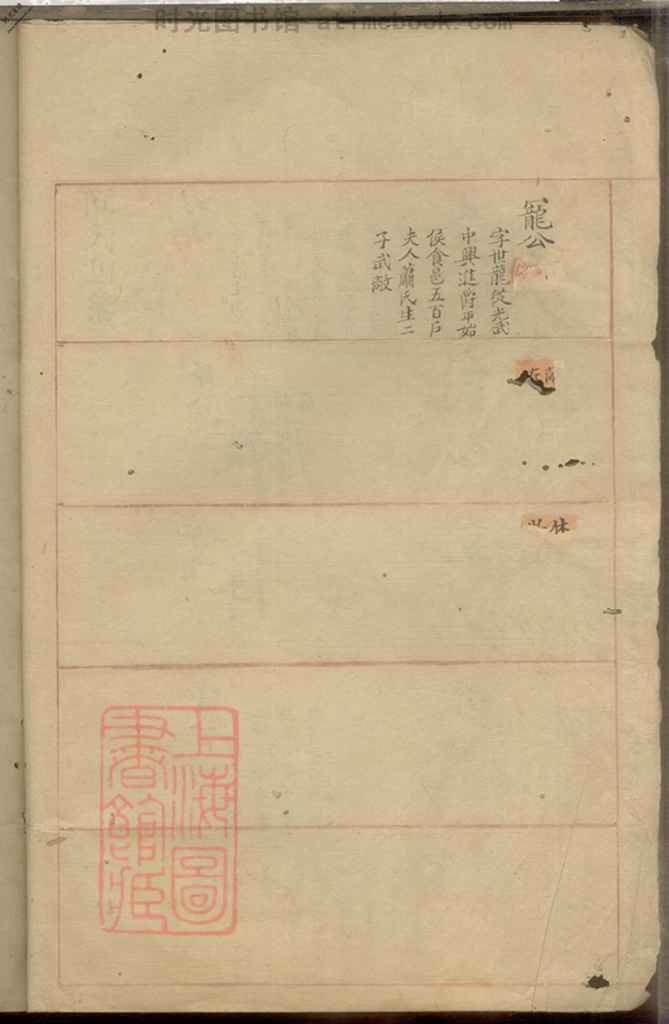 时光图书馆-atimebook.com
龍公
字世龍從光武
中興進爵平始
侯食邑五百戶
夫人蕭氏生二
子武敵
林
上海圖
書館臧